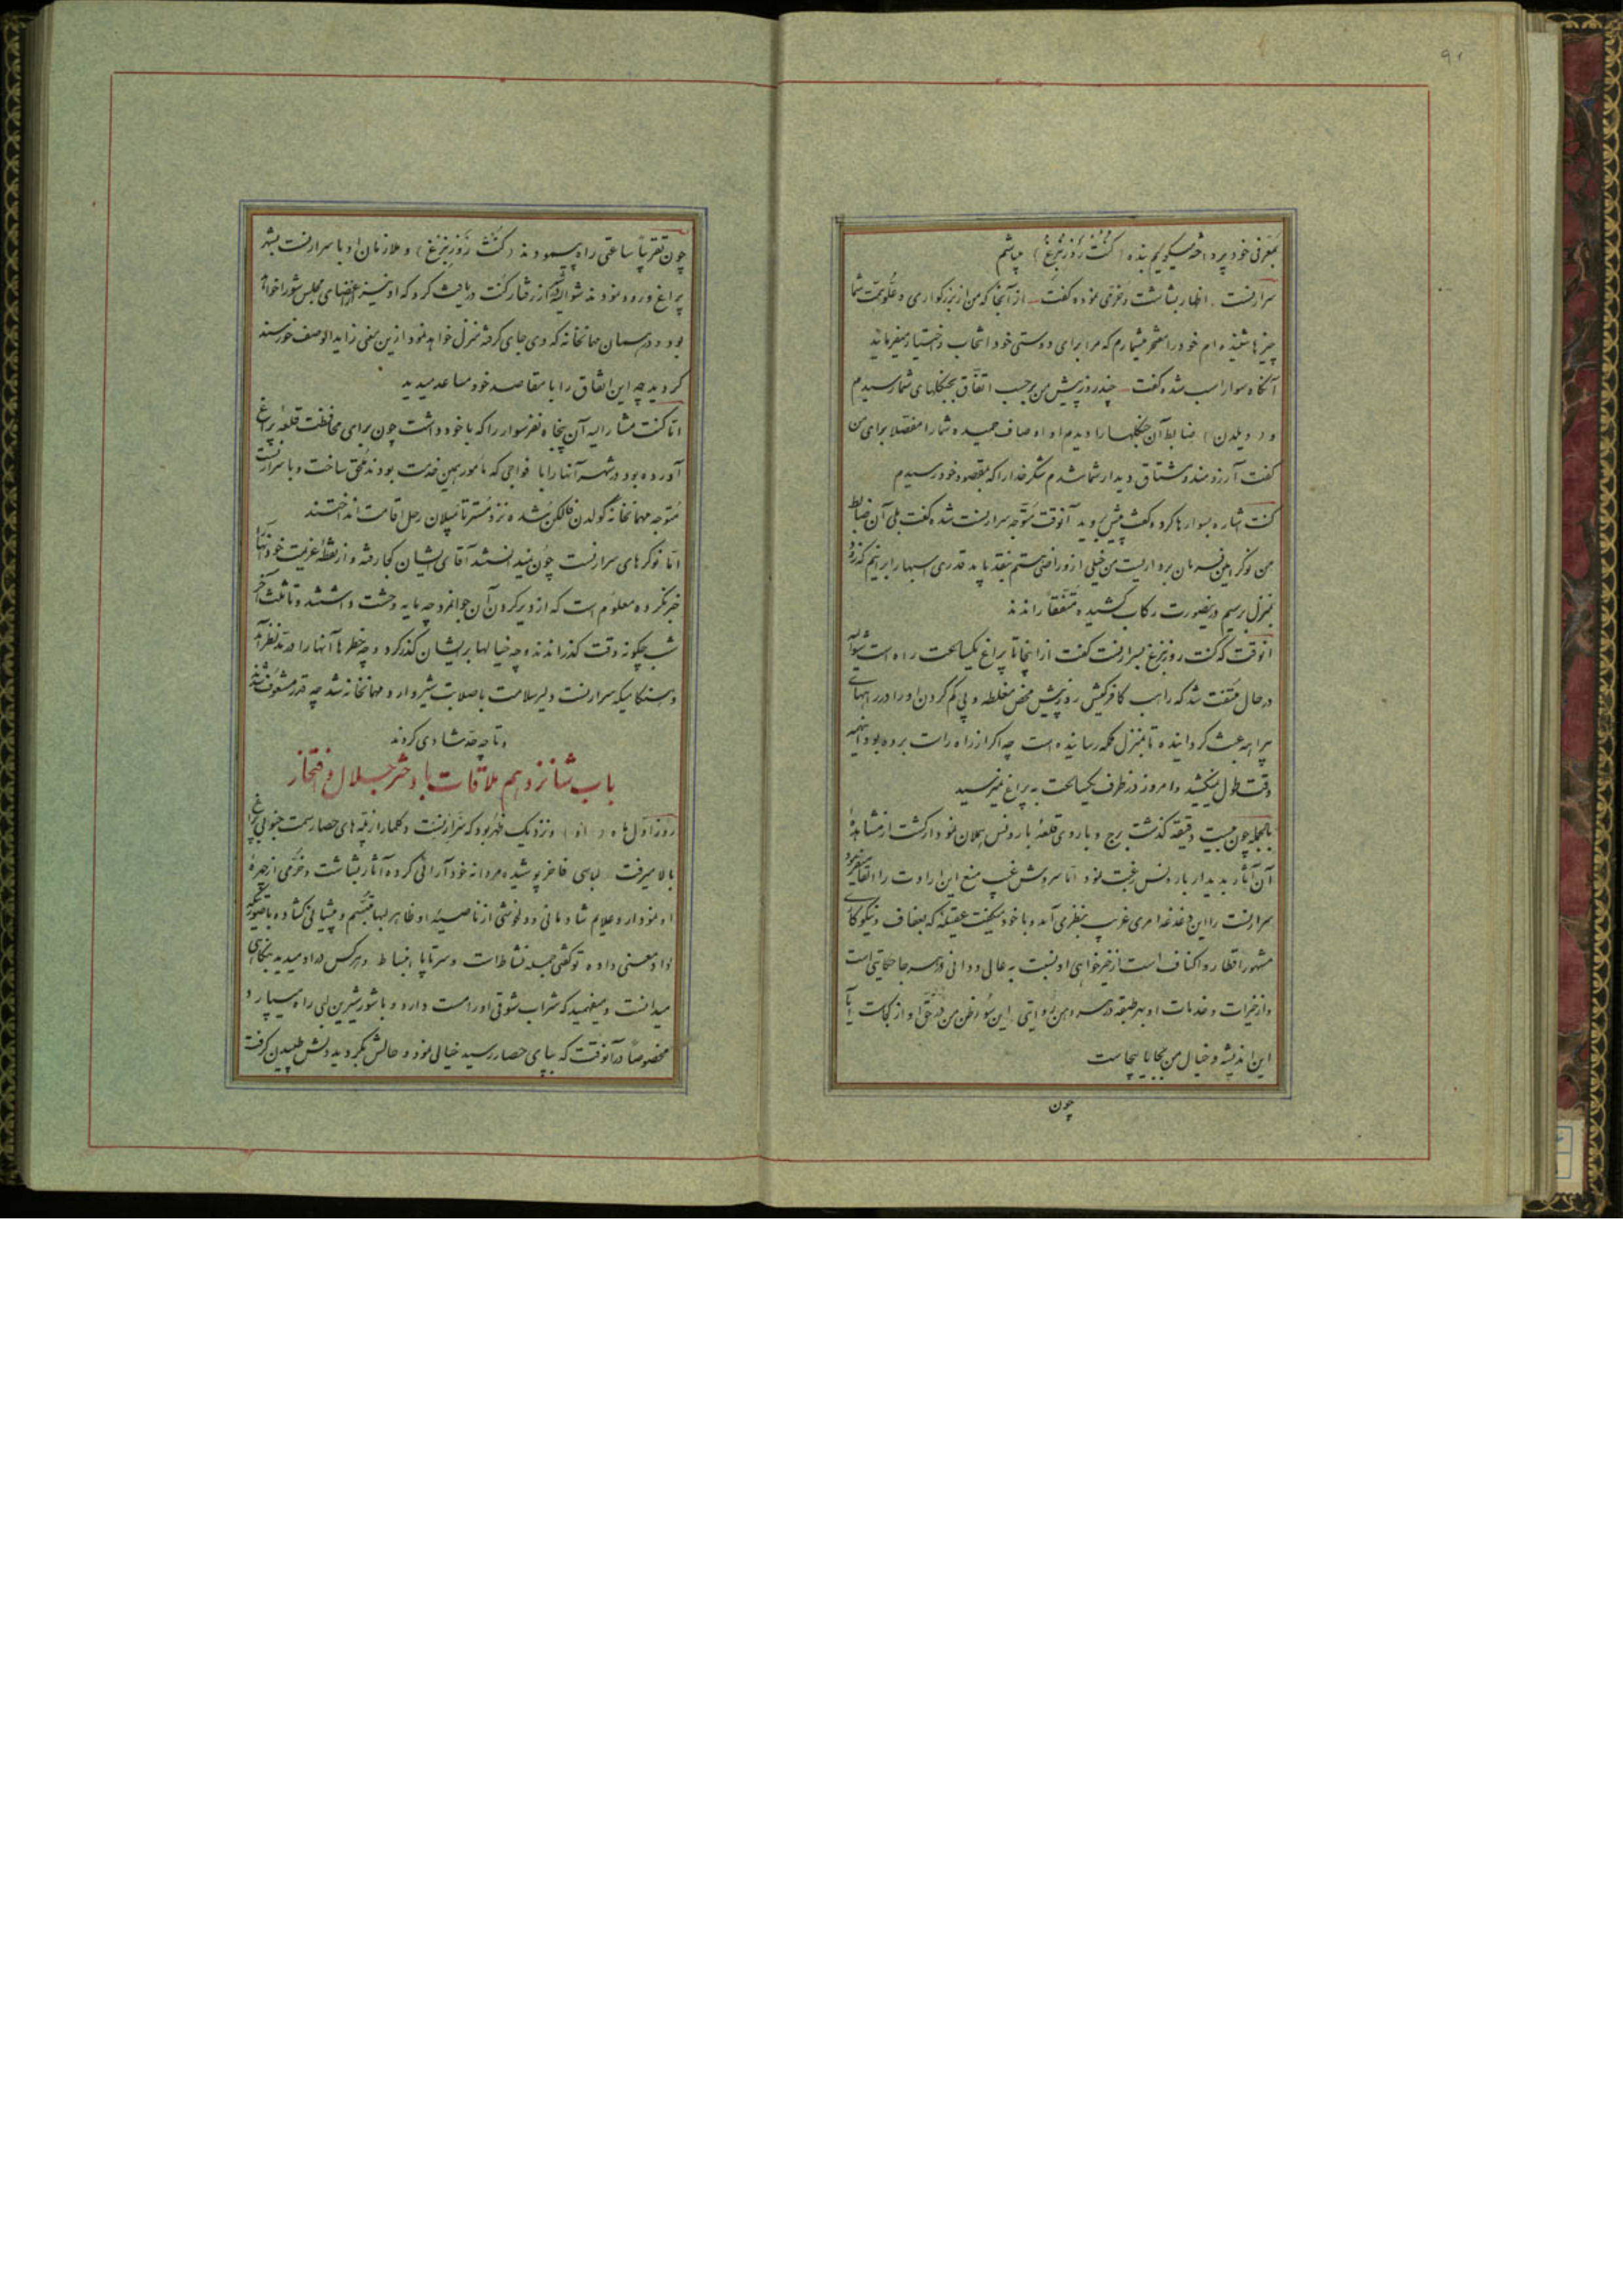 بمعرفی خود پرداخته میگویم بنده (کنت روزنبرغ) میباشم
سرارنست اظهار بشاشت و خرمی نموده گفت از آنجا که من از بزرگواری و علو همت شما
چیزها شنیده‌ام خود را مفتخر میشمارم که مرا برای دوستی خود انتخاب و اختیار میفرمائید
آنگاه سوار اسب شده گفت چند روز پیش من بر حسب اتفاق بجنگلهای شما رسیدم
و (ویلدن) ضابط آن جنگلها را دیدم او اوصاف حمیده شما را مفصلا برای من
گفت آرزومند و مشتاق دیدار شما شدم شکر خدا را که بمقصود خود رسیدم
کنت اشاره بسوارها کرده گفت پیش بروید آنوقت متوجه سرارنست شده گفت بلی آن ضابط
من نوکر امین فرمان‌برداریست من خیلی ازو راضی هستم بعد باید قدری اسبها را برانیم که زود
بمنزل برسیم درینصورت رکاب کشیده متفقا راندند
آنوقت که کنت روزنبرغ بسرارنست گفت از اینجا تا پراغ یکساعت راه است
در حال ملتفت شد که راهب کافرکیش روز پیش محض مغلطه و پی گم کردن او را در راههای
بیراهه عبث گردانیده تا بمنزل کلمه رسانیده است چه اگر از راه راست برده بود اینهمه
وقت طول نمیکشید و امروز در ظرف یکساعت به پراغ نمیرسید
بالجمله چون بیست دقیقه گذشت برج و باروی قلعه بارونس هملان نمودار گشت از مشاهدهٔ
آن آثار بدیدار بارونس رغبت نمود اما سروش غیب منع این ارادت را القا میفرمود
سرارنست را این دغدغه امری غریب بنظر می‌آمد و با خود میگفت عقیله که بعفاف و نیکوکاری
مشهور اقطار و اکناف است از خیرخواهی او نسبت به عالی و دانی در هر جا حکایتی است
و از خیرات و خدمات او بهر طبقه در هر دهن روایتی این سوء ظن من در حق او از کجاست آیا
این اندیشه و خیال من بجا یا بیجاست
چون
چون تقریبا ساعتی راه پیمودند (کنت روزنبرغ) و ملازمان او با سرارنست بشهر
پراغ ورود نمودند شوالیه از رفتار کنت دریافت کرد که او نیز از اعضای مجلس شورا خواهد
بود و در همان مهمانخانه که وی جای گرفته منزل خواهد نمود ازین معنی زاید الوصف خورسند
گردید چه این اتفاق را با مقاصد خود مساعد میدید
اما کنت مشارالیه آن پنجاه نفر سوار را که با خود داشت چون برای محافظت قلعهٔ پراغ
آورده بود در شهر آنها را با فواجی که مأمور همین خدمت بودند ملحق ساخت و با سرارنست
متوجه مهمانخانه گولدن فالکن شده نزد مستر تامپلان رحل اقامت انداختند
اما نوکرهای سرارنست چون نمیدانستند آقای ایشان کجا رفته و از نقطهٔ عزیمت خود آنها را
خبر نکرده معلوم است که از دیر کردن آن جوانمرد چه مایه وحشت داشتند و تا ثلث آخر
شب چگونه وقت گذراندند و چه خیالها بر ایشان گذر کرد و چه خطرها آنها را در مد نظر آمد
و هنگامیکه سرارنست دلیر سلامت با صلابت شیر وارد مهمانخانه شد چه قدر مشعوف شدند
و تا چه حد شادی کردند
باب شانزدهم ملاقات با دختر جلال و افتخار
روز اول ماه (     ) و نزدیک ظهر بود که سرارنست دکلمار از پله‌های حصار سمت جنوبی پراغ
بالا میرفت لباسی فاخر پوشیده مردانه خودآرائی کرده آثار بشاشت و خرمی از چهرهٔ
او نمودار و علایم شادمانی و دلخوشی از ناصیهٔ او ظاهر لبها متبسم و پیشانی گشاده باصورتیکه
داد معنی داده توگفتی جمله نشاط است و سر تا پا انبساط و هر کس در او میدید بنگاهی
میدانست و میفهمید که شراب شوقی او را مست دارد و با شور شیرین لبی راه میسپارد
مخصوصا در آنوقت که بپای حصار رسید خیالی نمود و حالش بگردید دلش طپیدن گرفت